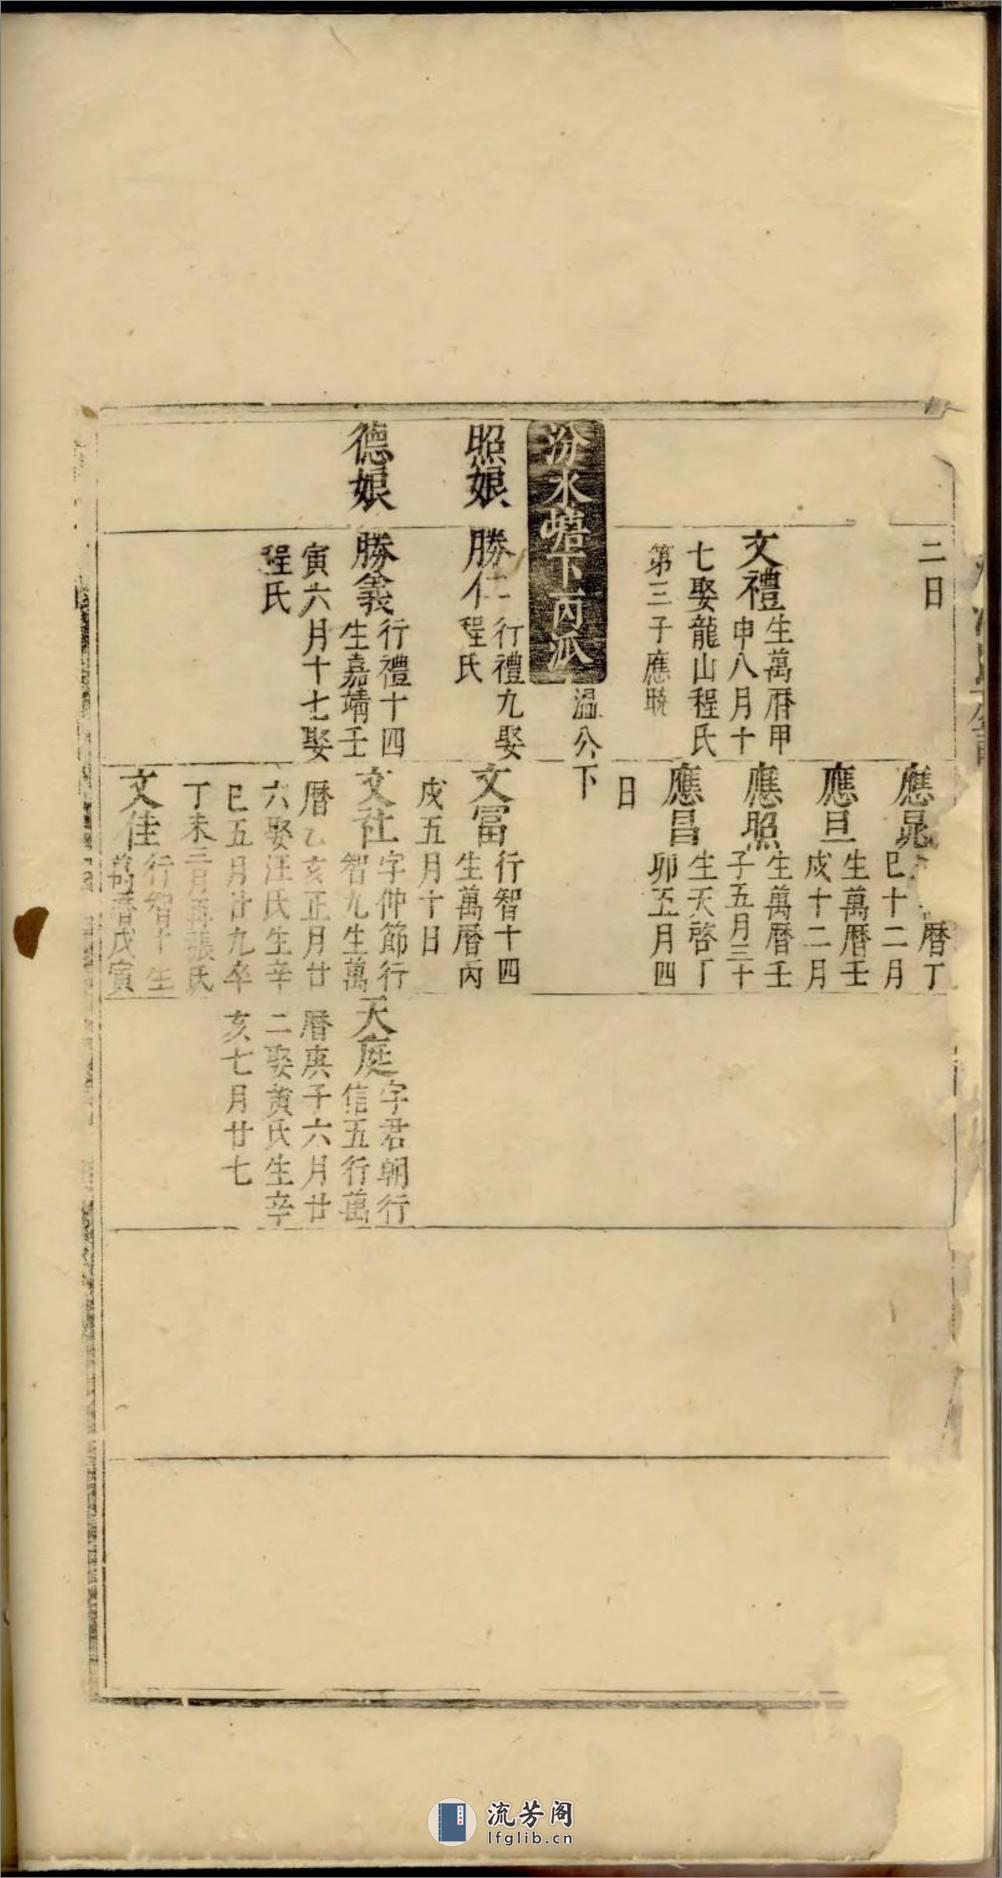 二日
文禮
生萬曆甲
申八月十
七娶龍山程氏
第三子應晄
應晁
曆丁
巳十二月
應旦
生萬曆壬
戌十二月
應照
生萬曆壬
子五月三十
日
應昌
生天啓丁
卯五月四
汾水
下丙派
溫公下
照娘
勝仁
行禮九娶
程氏
文富
行智十四
生萬曆丙
戌五月十日
德娘
勝義
行禮十四
生嘉靖壬
寅六月十七娶
程氏
文社
字仲節行
智九生萬
曆乙亥正月廿
六娶汪氏生辛
巳五月廿九卒
丁未三月再張氏
天庭
字君朝行
信五行萬
曆庚子六月廿
二娶黃氏生辛
亥七月廿七
文佳
行智十生
萬曆戊寅
流芳阁
lfglib.cn